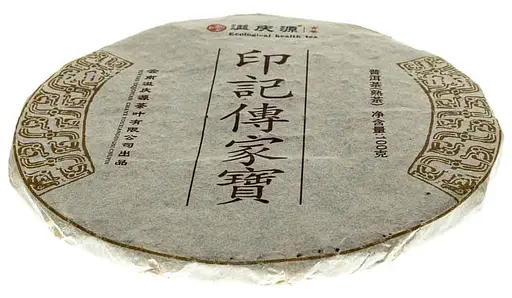 滋庆源®
Ecological health tea
印記傳家寶
普洱茶(熟茶) 净含量:100克
云南滋庆源茶叶有限公司出品